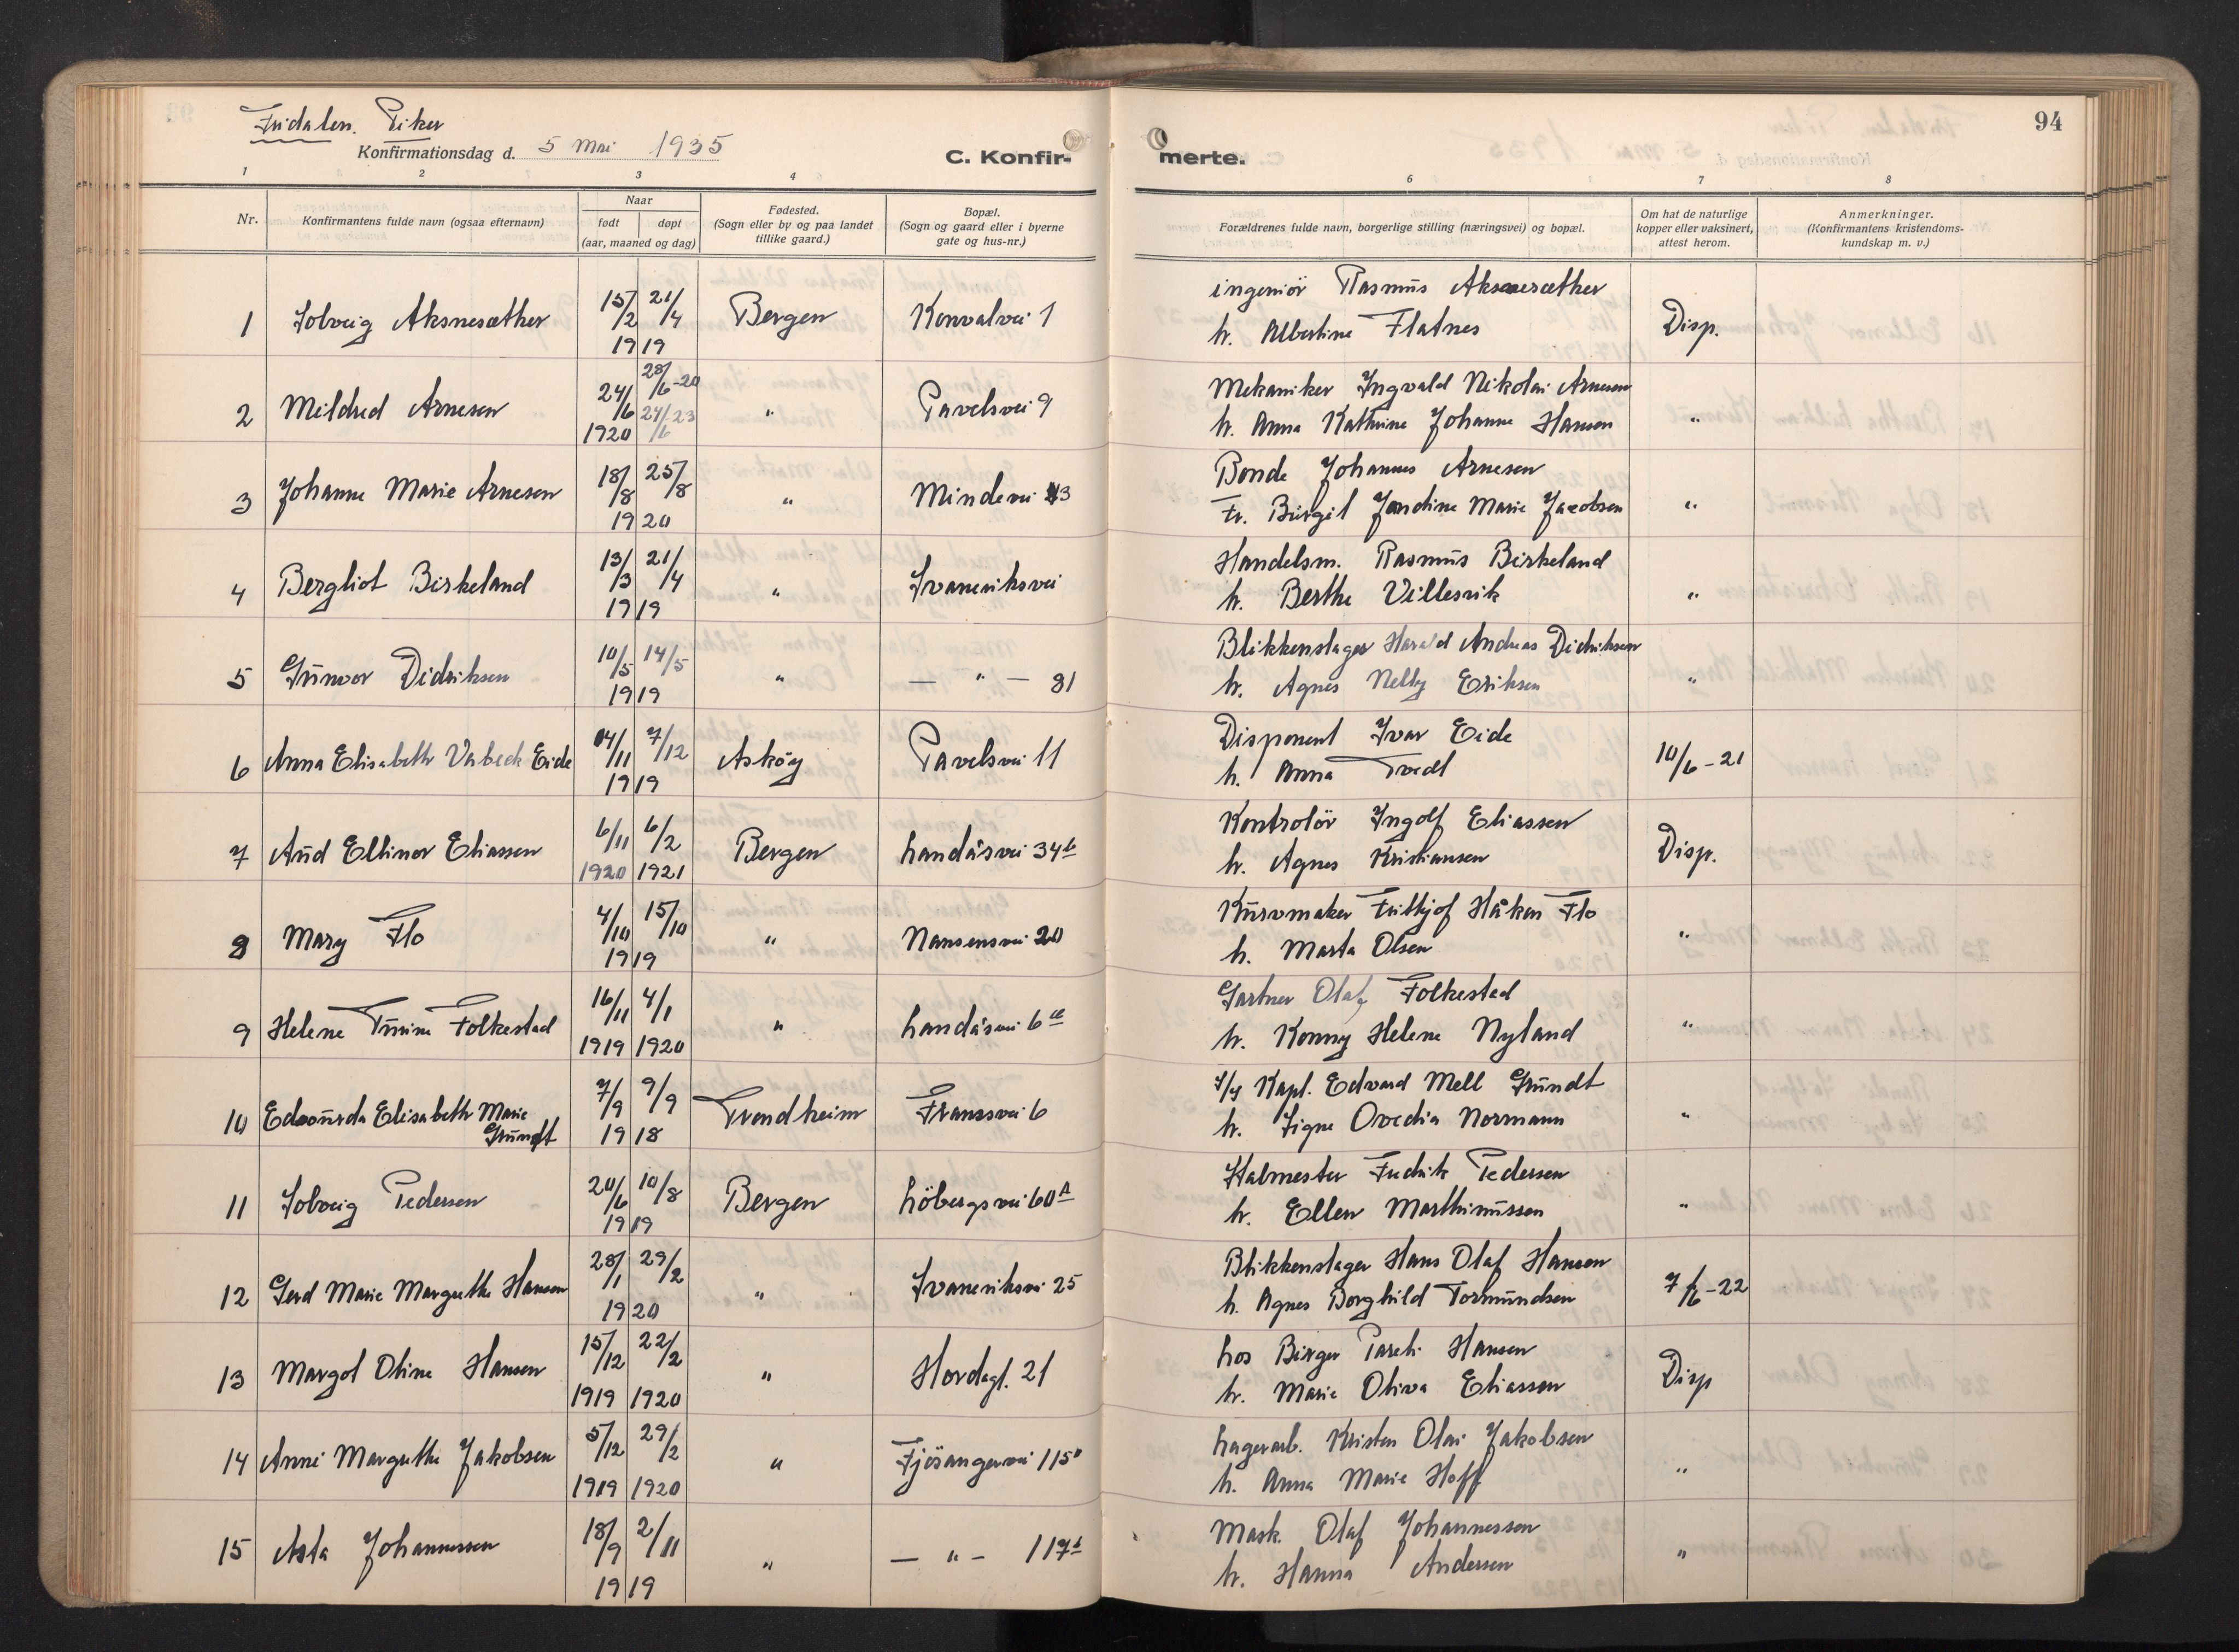 Fridalen. Piker
Konfirmationsdag d. 5 Mai 1935
C. Konfir-
merte.
94
1 2 3 4
6 7 8
Nr.
Konfirmantens fulde navn (ogsaa efternavn)
Naar
født døpt
(aar, maaned og dag)
Fødested.
(Sogn eller by og paa landet
tillike gaard.)
Bopæl.
(Sogn og gaard eller i byerne
gate og hus-nr.)
Forældrenes fulde navn, borgerlige stilling (næringsvei) og bopæl.
Om hat de naturlige
kopper eller vaksinert,
attest herom.
Anmerkninger.
(Konfirmantens kristendoms-
kundskap m. v.)
1 Solveig Aksnesæther 15/2 21/4 1919 Bergen Konvalvei 1
ingeniör Rasmus Aksnesæther
h. Albertine Flatnes Disp.
2 Mildred Arnesen 24/6 1920 28/6-20 24/6 23 " Pavelsvei 9
Mekaniker Ingvald Nikolai Arnesen
h. Anna Kathrine Johanne Hansen "
3 Johanne Marie Arnesen 18/8 25/8 1920 " Mindevei 43
Bonde Johannes Arnesen
Fr. Birgit Jendine Marie Jacobsen "
4 Bergliot Birkeland 13/3 21/4 1919 " Ivareriksvei
Handelsm. Rasmus Birkeland
h. Berthe Villesvik "
5 Gunvor Didriksen 10/5 14/5 1919 " — " — 81
Blikkenslager Harald Andreas Didriksen
h. Agnes Nelly Eriksen "
6 Anna Elisabeth Verbeck Eide 04/11 7/12 1919 Asköy Pavelsvei 11
Disponent Ivar Eide
h. Anna Tvedt 10/6-21
7 Aud Ellinor Eliassen 6/11 1920 6/2 1921 Bergen Landåsvei 34b
Kontrolör Ingolf Eliassen
h. Agnes Kristiansen Disp.
8 Mary Flo 4/10 15/10 1919 " Nansensvei 20
Kurvmaker Frithjof Håken Flo
h. Marta Olsen "
9 Helene Turine Folkestad 16/11 1919 4/1 1920 " Landåsvei 6
Gartner Olaf Folkestad
h. Konny Helene Nyland "
10 Edvourda Elisabeth Marie
Grundt 7/9 9/9 1918 Trondheim Fransvei 6
Kapt. Edvard Mell Grundt
h. Signe Ovedia Normann "
11 Solveig Pedersen 20/6 10/8 1919 Bergen Löbergsvei 60A
Stalmester Fredrik Pedersen
h. Ellen Marthinussen "
12 Gerd Marie Margrethe Hansen 28/1 29/2 1920 " Ivareriksvei 25
Blikkenslager Hans Olaf Hansen
h. Agnes Borghild Tormundsen 7/6-22
13 Margot Oline Hansen 15/12 1919 22/2 1920 " Hordagt. 21
Los Birger Hansen
h. Marie Oliva Eliassen Disp
14 Anni Margrethe Jakobsen 5/12 1919 29/2 1920 " Fjösangervei 115
Lagerarb. Kristen Olai Jakobsen
h. Anna Marie Hoff "
15 Asta Johannessen 18/9 2/11 1919 " — " — 117
Mask. Olaf Johannessen
h. Hanna Andersen "